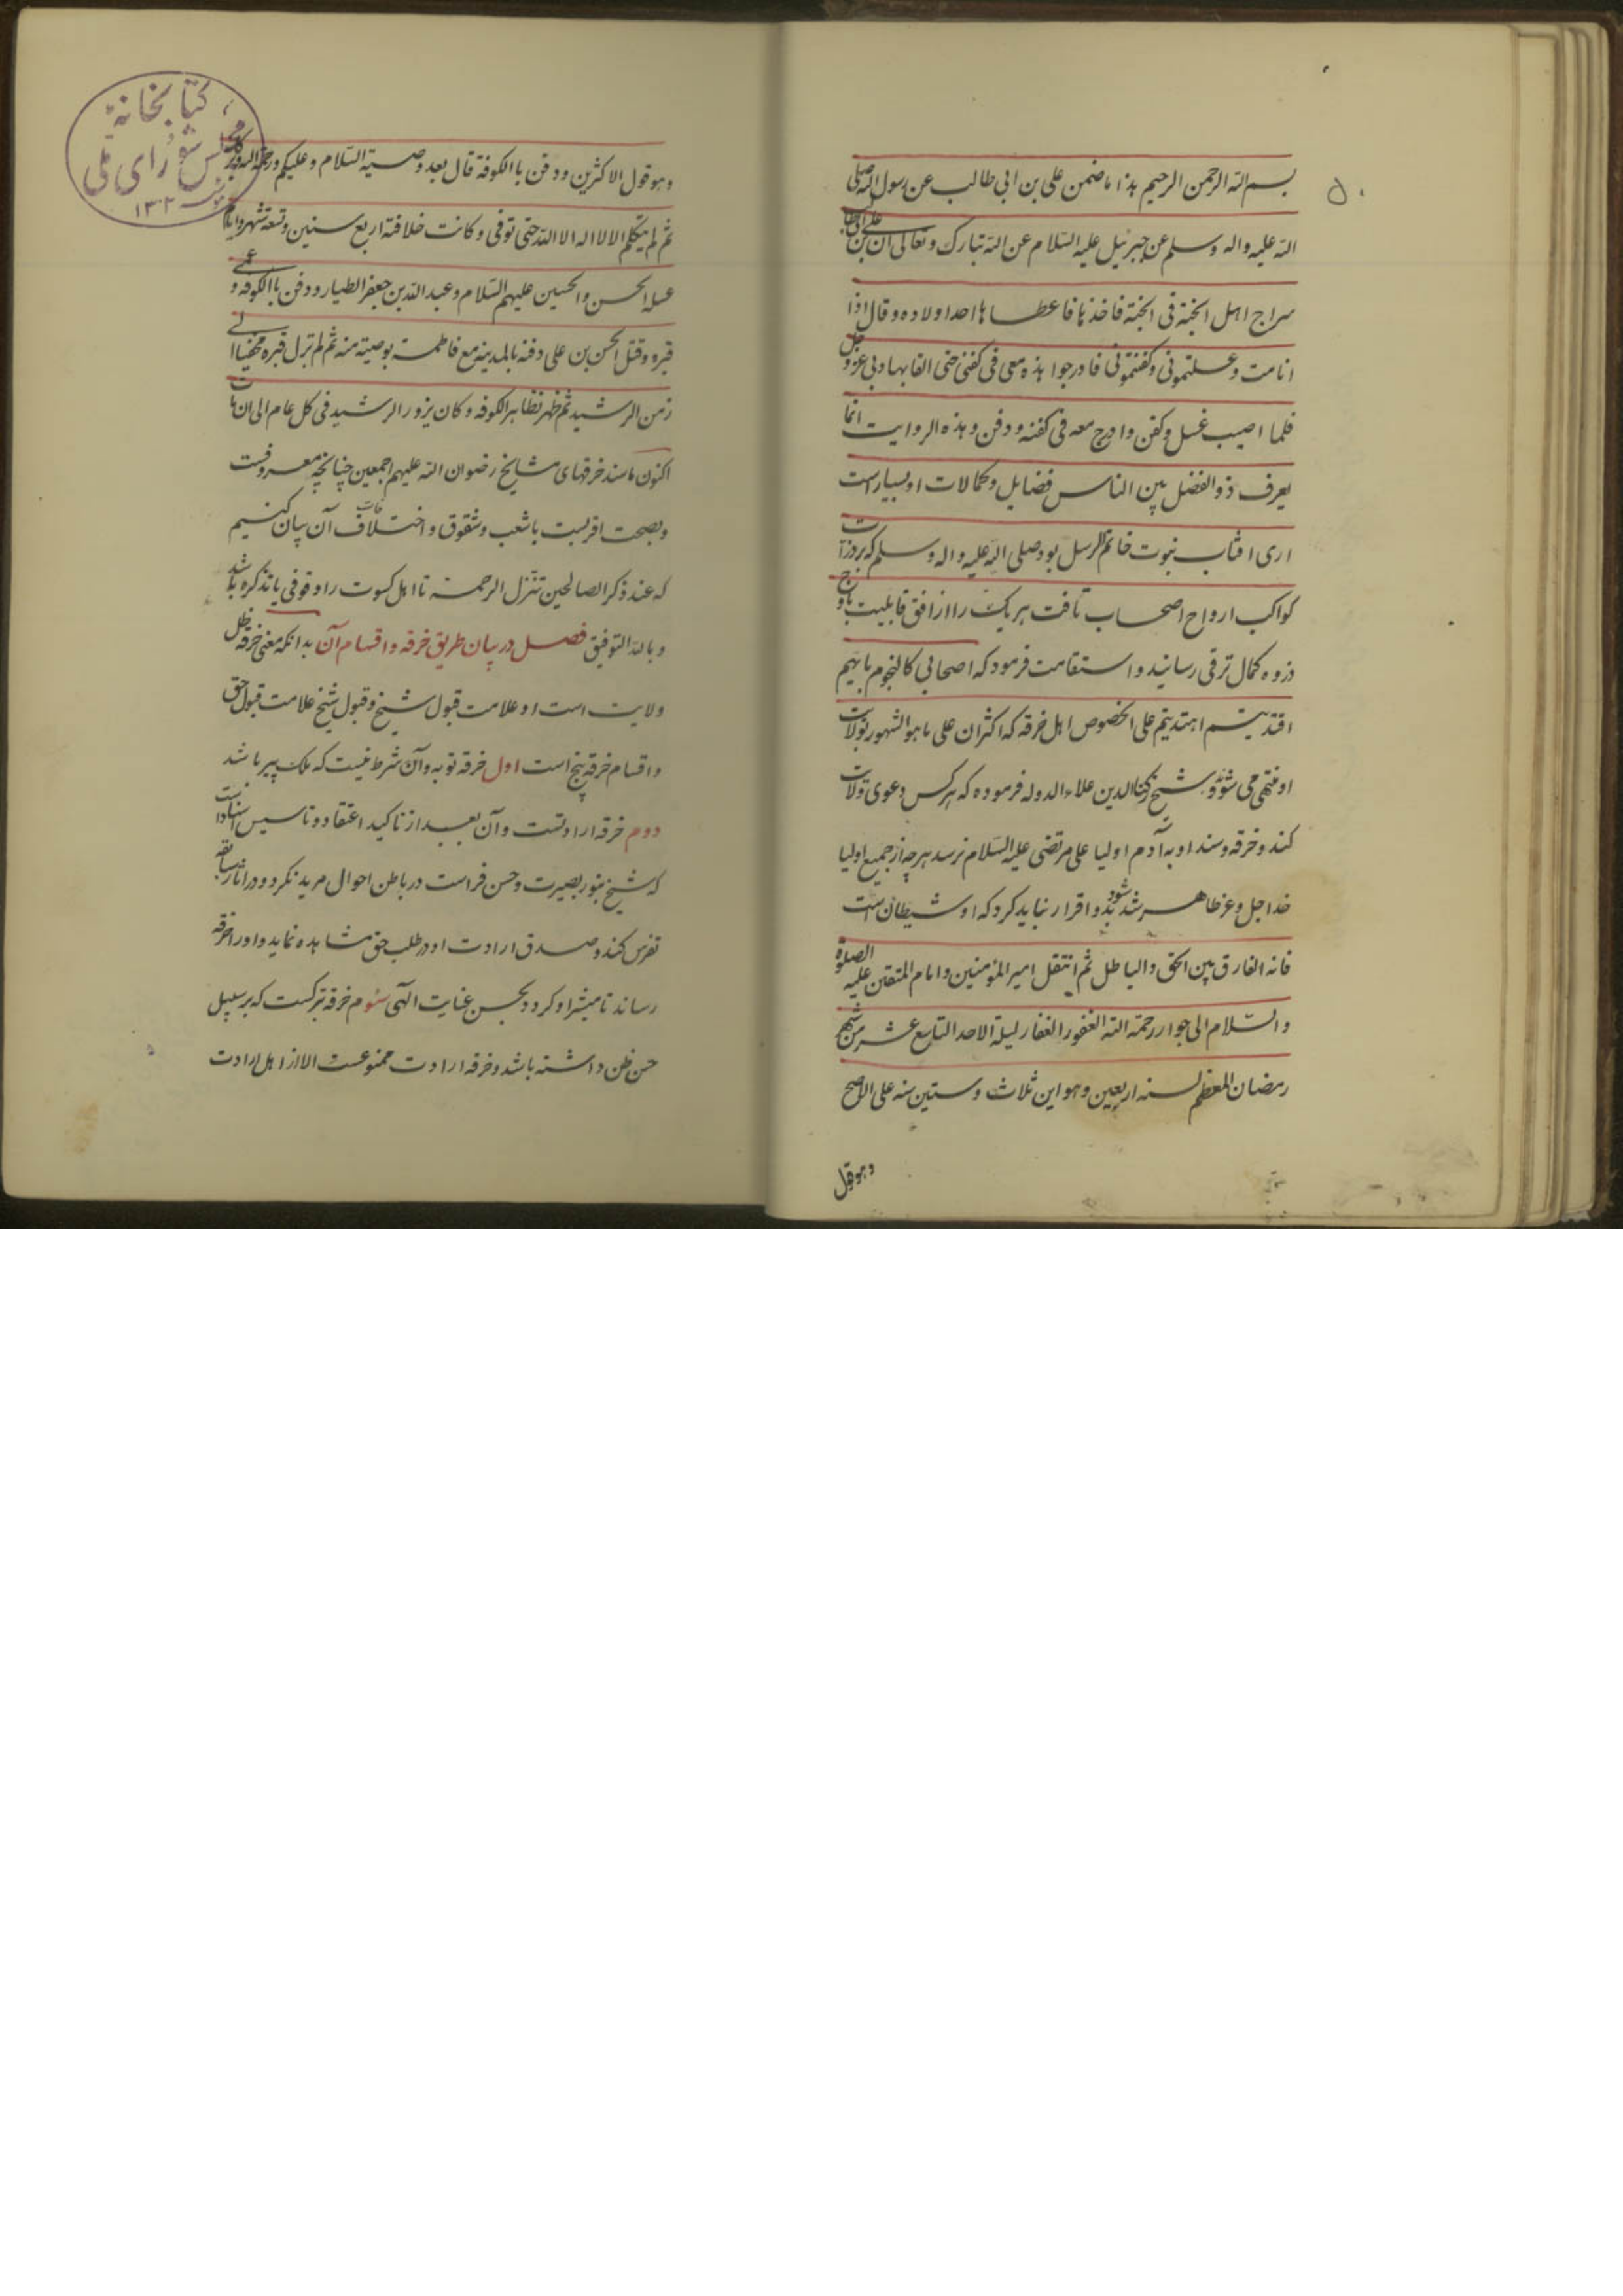 ۵۰
بسم الله الرحمن الرحیم هذا ما ضمن علی بن ابی طالب عن رسول الله صلی
الله علیه واله وسلم عن جبرئیل علیه السلام عن الله تبارک وتعالی ان علی بن ابی طالب
سراج اهل الجنة فی الجنة فاخذها فاعطاها احدا ولاده وقال اذا
انامت وغسلتمونی وکفنتمونی فادرجوا هذه معی فی کفنی حتی القابها ربی عز و جل
فلما اصیب غسل وکفن وادرج معه فی کفنه ودفن وهذه الروایت انما
یعرف ذوالفضل بین الناس فضایل وکمالات او بسیار است
اری افتاب نبوت خاتم الرسل بود صلی الله علیه واله وسلم که بروزات
کواکب ارواح اصحاب تافت هر یک را از افق قابلیت باوج
ذروه کمال ترقی رسانید واستقامت فرمود که اصحابی کالنجوم بایهم
اقتدیتم اهتدیتم علی الخصوص اهل خرقه که اکثران علی ماهو المشهور بولات
او منتهی می شود و شیخ رکن الدین علاء الدوله فرموده که هر کس دعوی ولات
کند وخرقه وسند او به آدم اولیا علی مرتضی علیه السلام نرسد هر چه از جمیع اولیا
خدا جل وعز ظاهر شد شود بدو اقرار نباید کرد که او شیطان است
فانه الفارق بین الحق والباطل ثم انتقل امیر المؤمنین وامام المتقین علیه الصلوة
والسلام الی جوار رحمة الله الغفور الغفار لیلة الاحد التاسع عشر من شهر
رمضان المعظم لسنه اربعین وهو ابن ثلاث وستین سنه علی الاصح
وهو قول
کتابخانهٔ
مجلس شورای ملی
۱۳۰۲
وهو قول الاکثرین ودفن باالکوفة قال بعد وصیته السلام وعلیکم ورحمة الله وبرکاته
ثم لم یتکلم الا لا اله الا الله حتی توفی وکانت خلافته اربع سنین وتسعة شهر وایام
غسله الحسن والحسین علیهم السلام وعبد الله بن جعفر الطیار ودفن باالکوفه و عمی
قبره وقتل الحسن بن علی دفنه بالمدینه مع فاطمة بوصیته منه ثم لم تزل قبره مخفیا الی
زمن الرشید ثم ظهر بظاهر الکوفه وکان یزور الرشید فی کل عام الی ان مات
اکنون ماسند خرقهای مشایخ رضوان الله علیهم اجمعین چنانچه معروفست
وبصحت اقربست باشعب وشقوق واختلافات آن بیان کنیم
که عند ذکر الصالحین تنزل الرحمة تا اهل کسوت را وقوفی یا تذکره باشد
وبالله التوفیق فصل در بیان طریق خرقه واقسام آن بدانکه معنی خرقه ظل
ولایت است او علامت قبول شیخ وقبول شیخ علامت قبول حق
واقسام خرقه پنج است اول خرقه توبه وآن شرط نیست که ملک پیر باشد
دوم خرقه ارادتست وآن بعد از تاکید اعتقاد وتاسیس
که شیخ بنور بصیرت وحسن فراست در باطن احوال مرید نکرد ودر اثار سابقه
تفرس کند وصدق ارادت او در طلب حق مشاهده نماید واورا خرقه
رساند تا مبشر او کردد بحسن عنایت الهی سوم خرقه تبرکست که بر سبیل
حسن ظن داشته باشد وخرقه ارادت ممنوعست الا از اهل ارادت